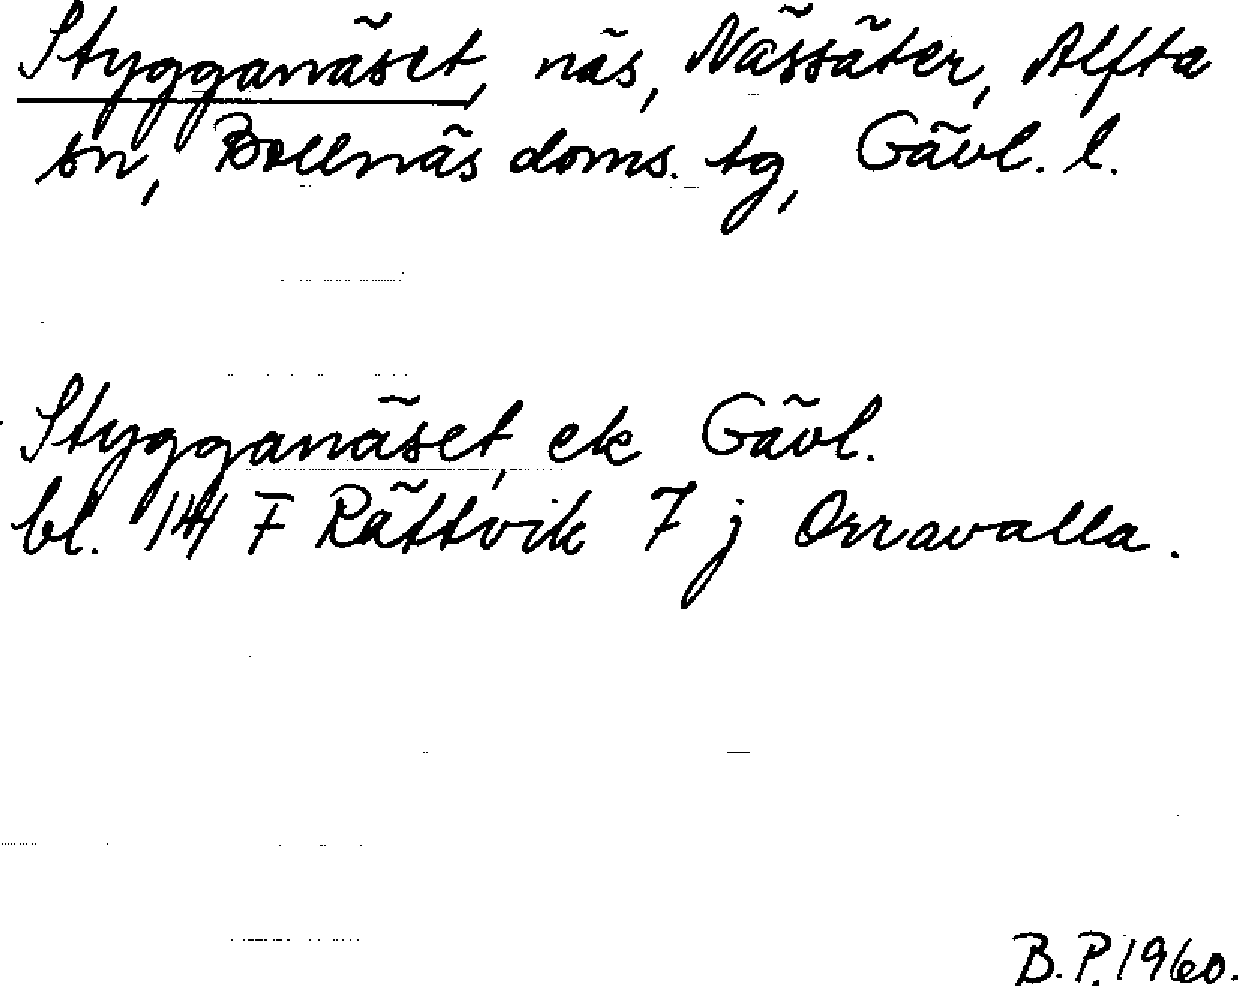 Stygganäset, näs, Nässäter, Alfta
sn, Bollnäs doms. tg, Gävl. l.
Stygganäset, ek Gävl.
bl. 14H F Rättvik 7 j Orravalla.
B.P. 1960.